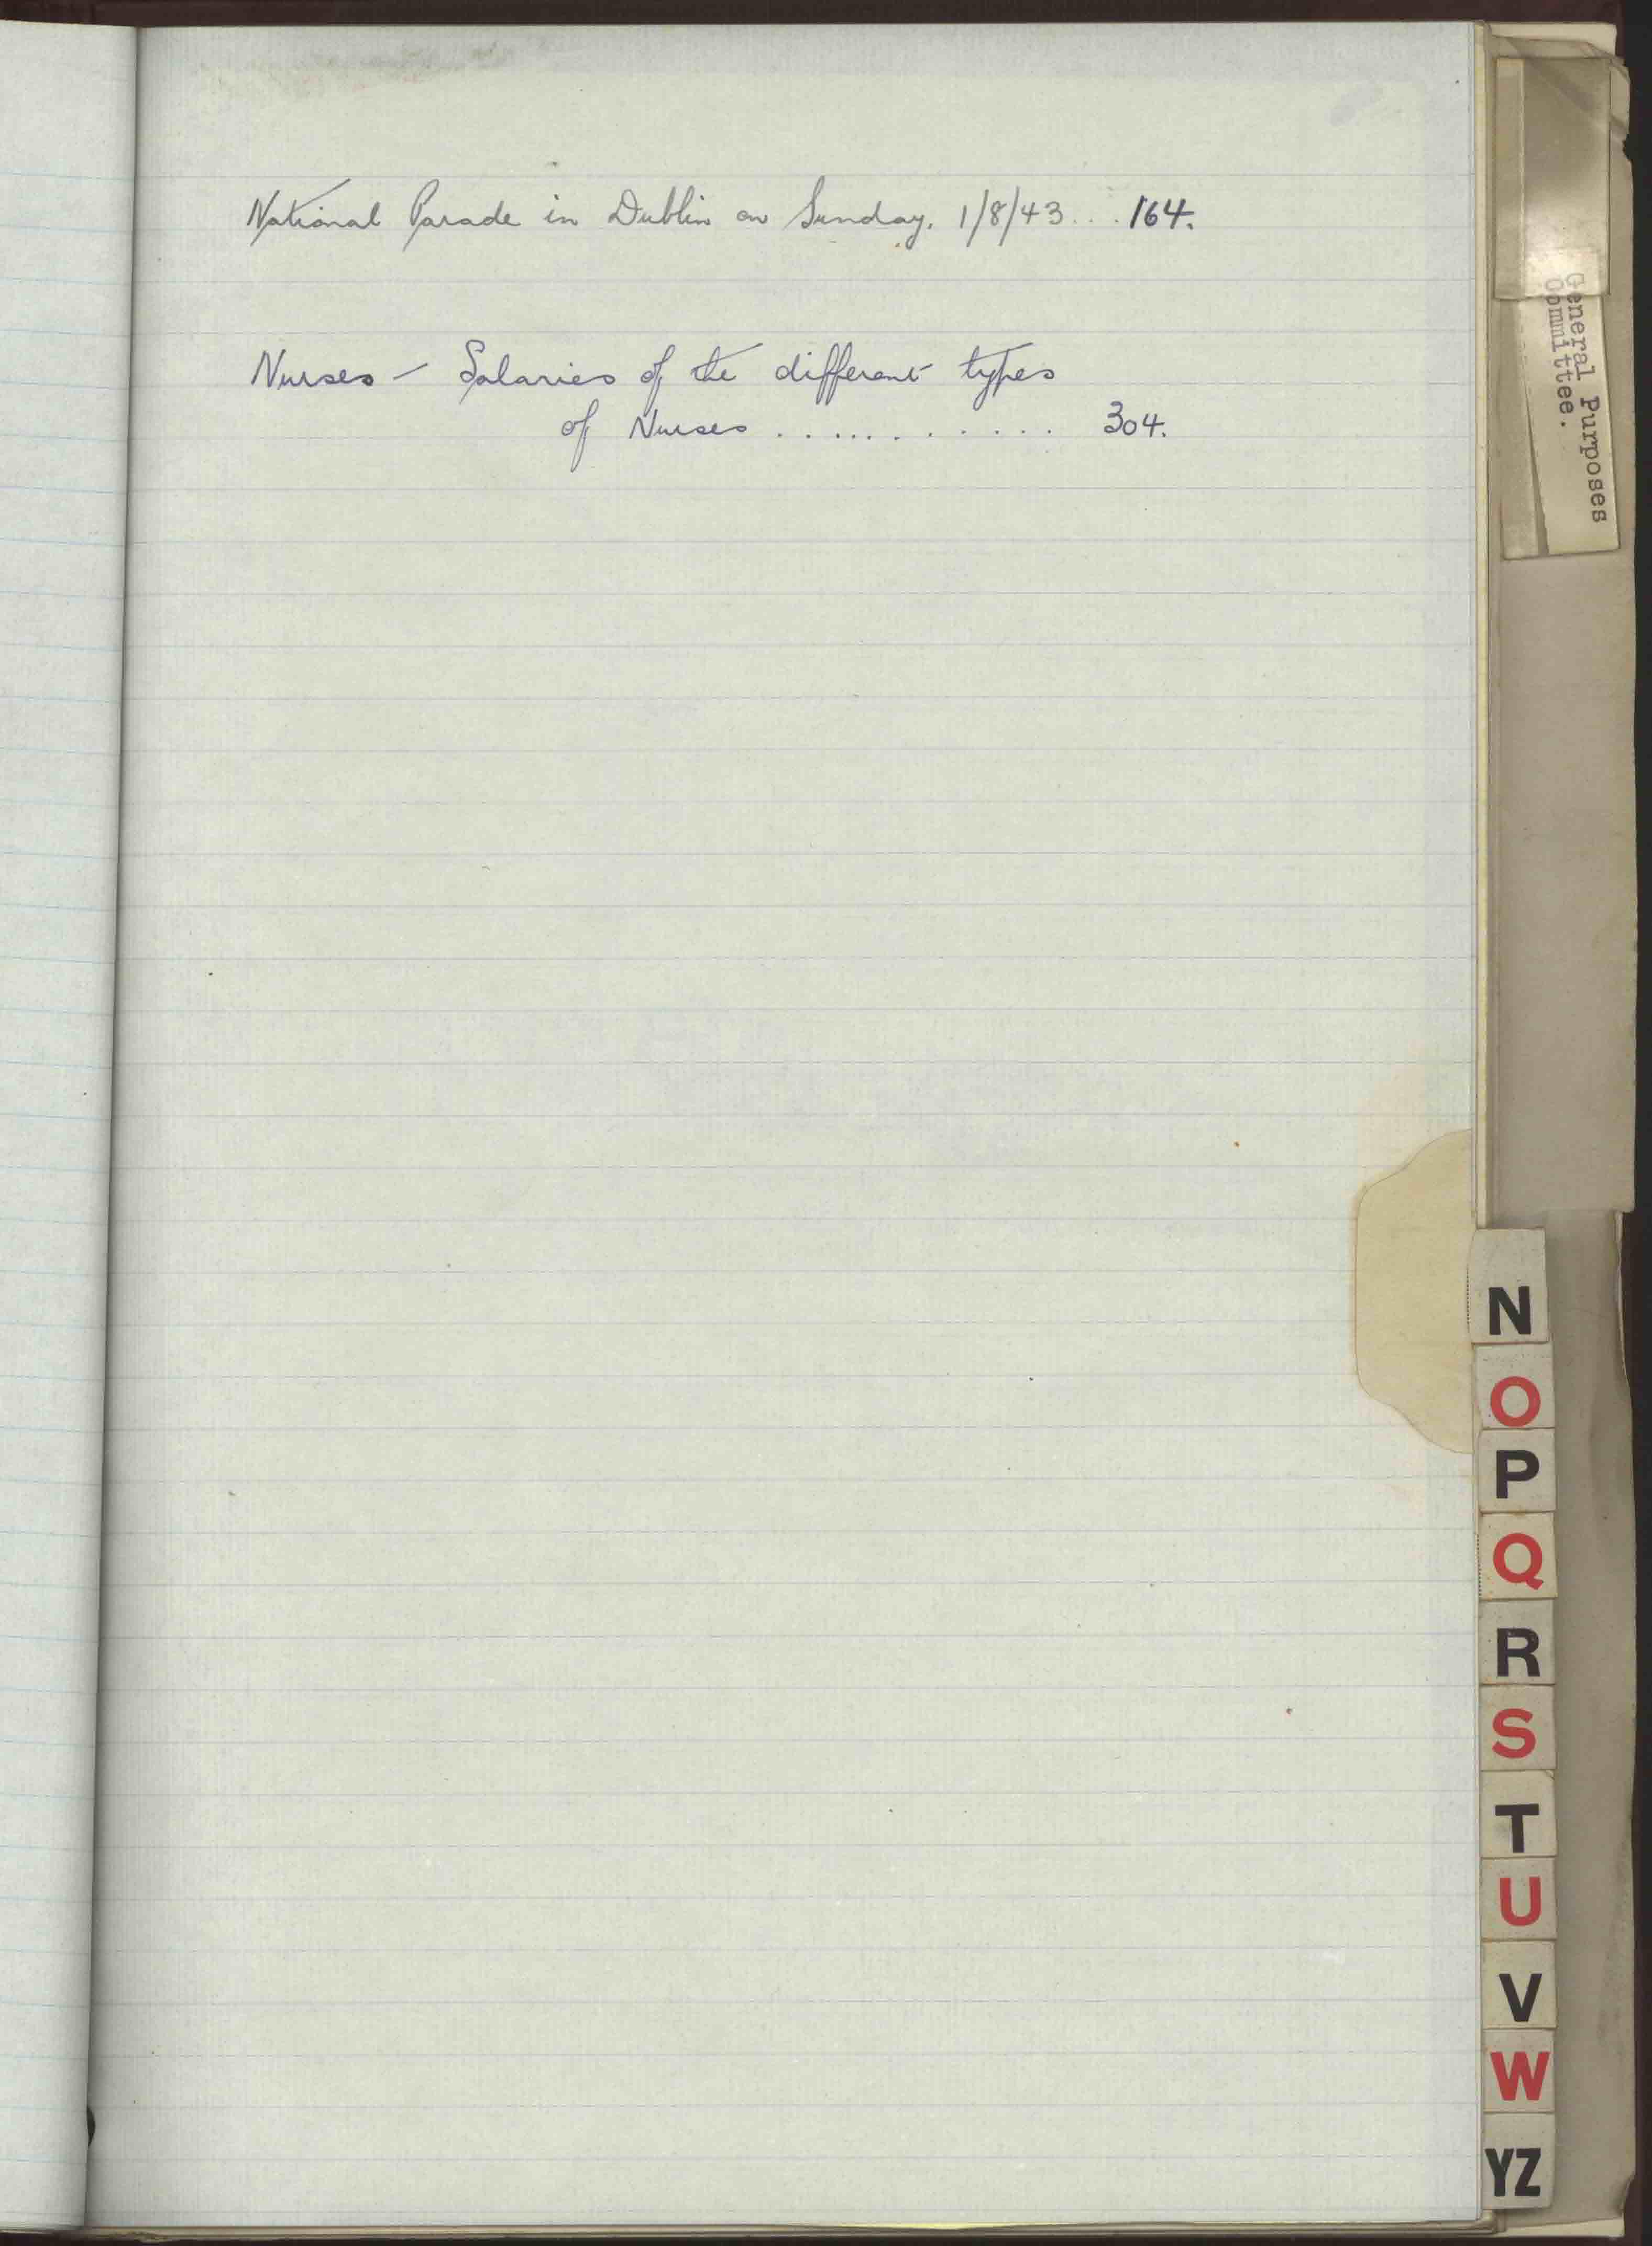 National Parade in Dublin on Sunday, 1/8/43 ... 164.
Nurses – Salaries of the different types
of Nurses ............ 304.
General Purposes
Committee.
N
O
P
Q
R
S
T
U
V
W
YZ